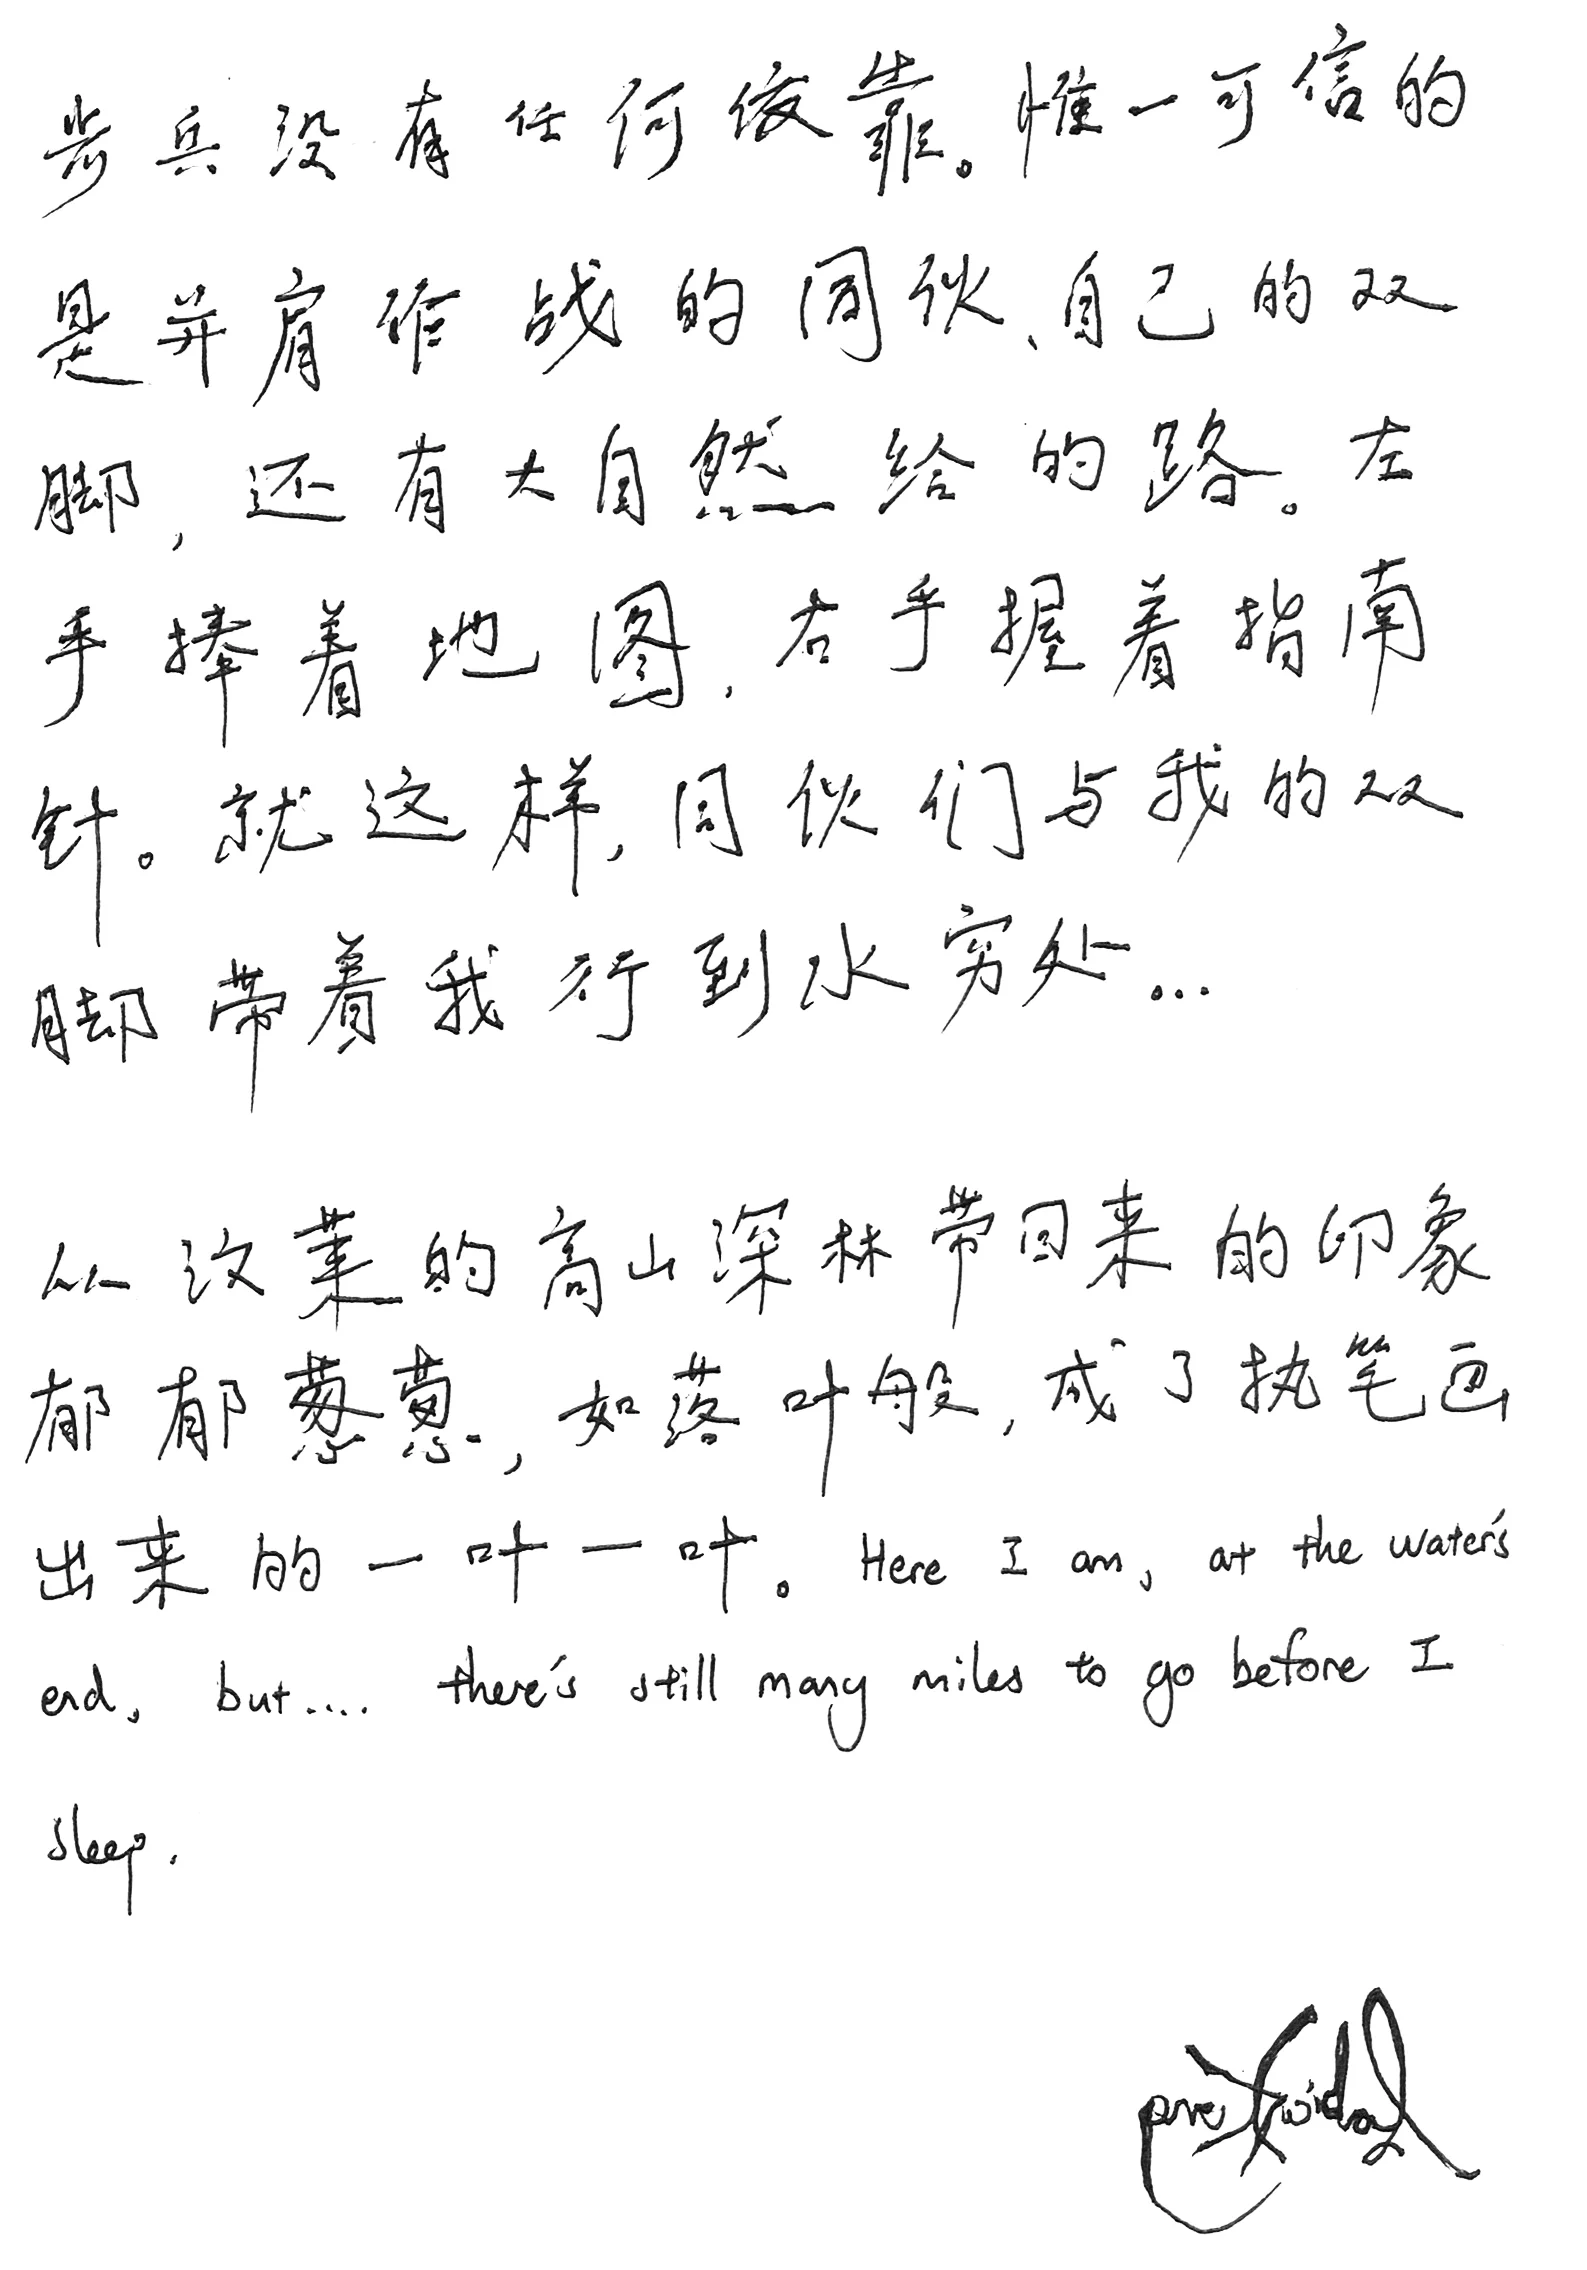 步兵没有任何依靠。惟一可信的
是并肩作战的同伙、自己的双
脚,还有大自然给的路。左
手捧着地图,右手握着指南
针。就这样,同伙们与我的双
脚带着我行到水穷处...
从汶莱的高山深林带回来的印象
郁郁葱葱,如落叶般,成了执笔画
出来的一叶一叶。Here I am, at the water's
end, but.... there's still many miles to go before I
sleep.